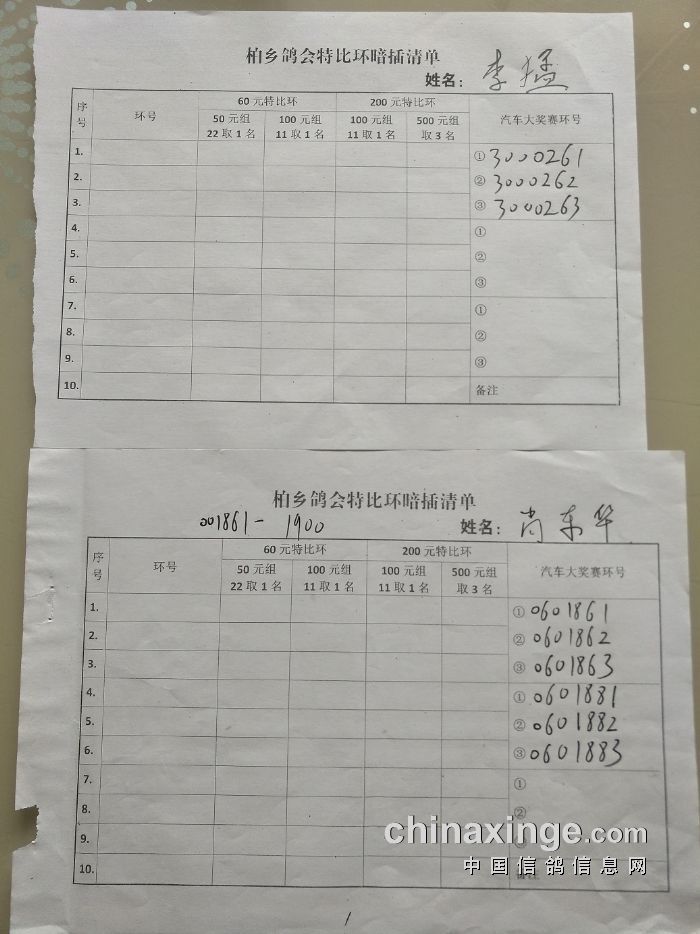 柏乡鸽会特比环暗插清单
姓名：李猛
序号 环号 60元特比环 200元特比环 汽车大奖赛环号
50元组 22取1名 100元组 11取1名 100元组 11取1名 500元组 取3名
1. ①3000261
2. ②3000262
3. ③3000263
4. ①
5. ②
6. ③
7. ①
8. ②
9. ③
10. 备注
柏乡鸽会特比环暗插清单
001861-1900 姓名：肖东华
序号 环号 60元特比环 200元特比环 汽车大奖赛环号
50元组 22取1名 100元组 11取1名 100元组 11取1名 500元组 取3名
1. ①0601861
2. ②0601862
3. ③0601863
4. ①0601881
5. ②0601882
6. ③0601883
7. ①
8. ②
9.
10. 备注
chinaxinge.com
中国信鸽信息网
1